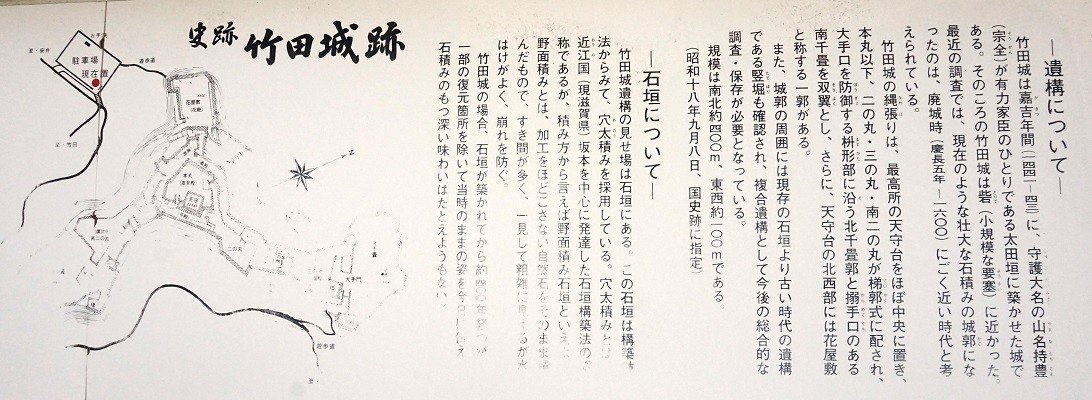 史跡 竹田城跡
―遺構について―
竹田城は嘉吉年間(一四四一―四三)に、守護大名の山名持豊
(宗全)が有力家臣のひとりである太田垣に築かせた城で
ある。そのころの竹田城は砦(小規模な要塞)に近かった。
最近の調査では、現在のような壮大な石積みの城郭にな
ったのは、廃城時(慶長五年―一六〇〇)にごく近い時代と考
えられている。
竹田城の縄張りは、最高所の天守台をほぼ中央に置き、
本丸以下、二の丸・三の丸・南二の丸が梯郭式に配され、
大手口を防御する枡形部に沿う北千畳郭と搦手口のある
南千畳を双翼とし、さらに、天守台の北西部には花屋敷
と称する一郭がある。
また、城郭の周囲には現存の石垣より古い時代の遺構
である竪堀も確認され、複合遺構として今後の総合的な
調査・保存が必要となっている。
規模は南北約四〇〇m、東西約一〇〇mである。
(昭和十八年九月八日、国史跡に指定)
―石垣について―
竹田城遺構の見せ場は石垣にある。この石垣は構築
法からみて、穴太積みを採用している。穴太積みと
近江国(現滋賀県)坂本を中心に発達した石垣構築法の
称であるが、積み方から言えば野面積み石垣といえ
野面積みとは、加工をほどこさない自然石をそのまま
んだもので、すき間が多く、一見して粗雑に見えるが
はけがよく、崩れを防ぐ。
竹田城の場合、石垣が築かれてから約四〇〇年
一部の復元箇所を除いて当時のままの姿を今日に伝え
石積みのもつ深い味わいはたとえようもない。
駐車場
現在置
遊歩道
至・竹田
花屋敷
本丸
天守台
二の丸
南二の丸
大手門
遊歩道